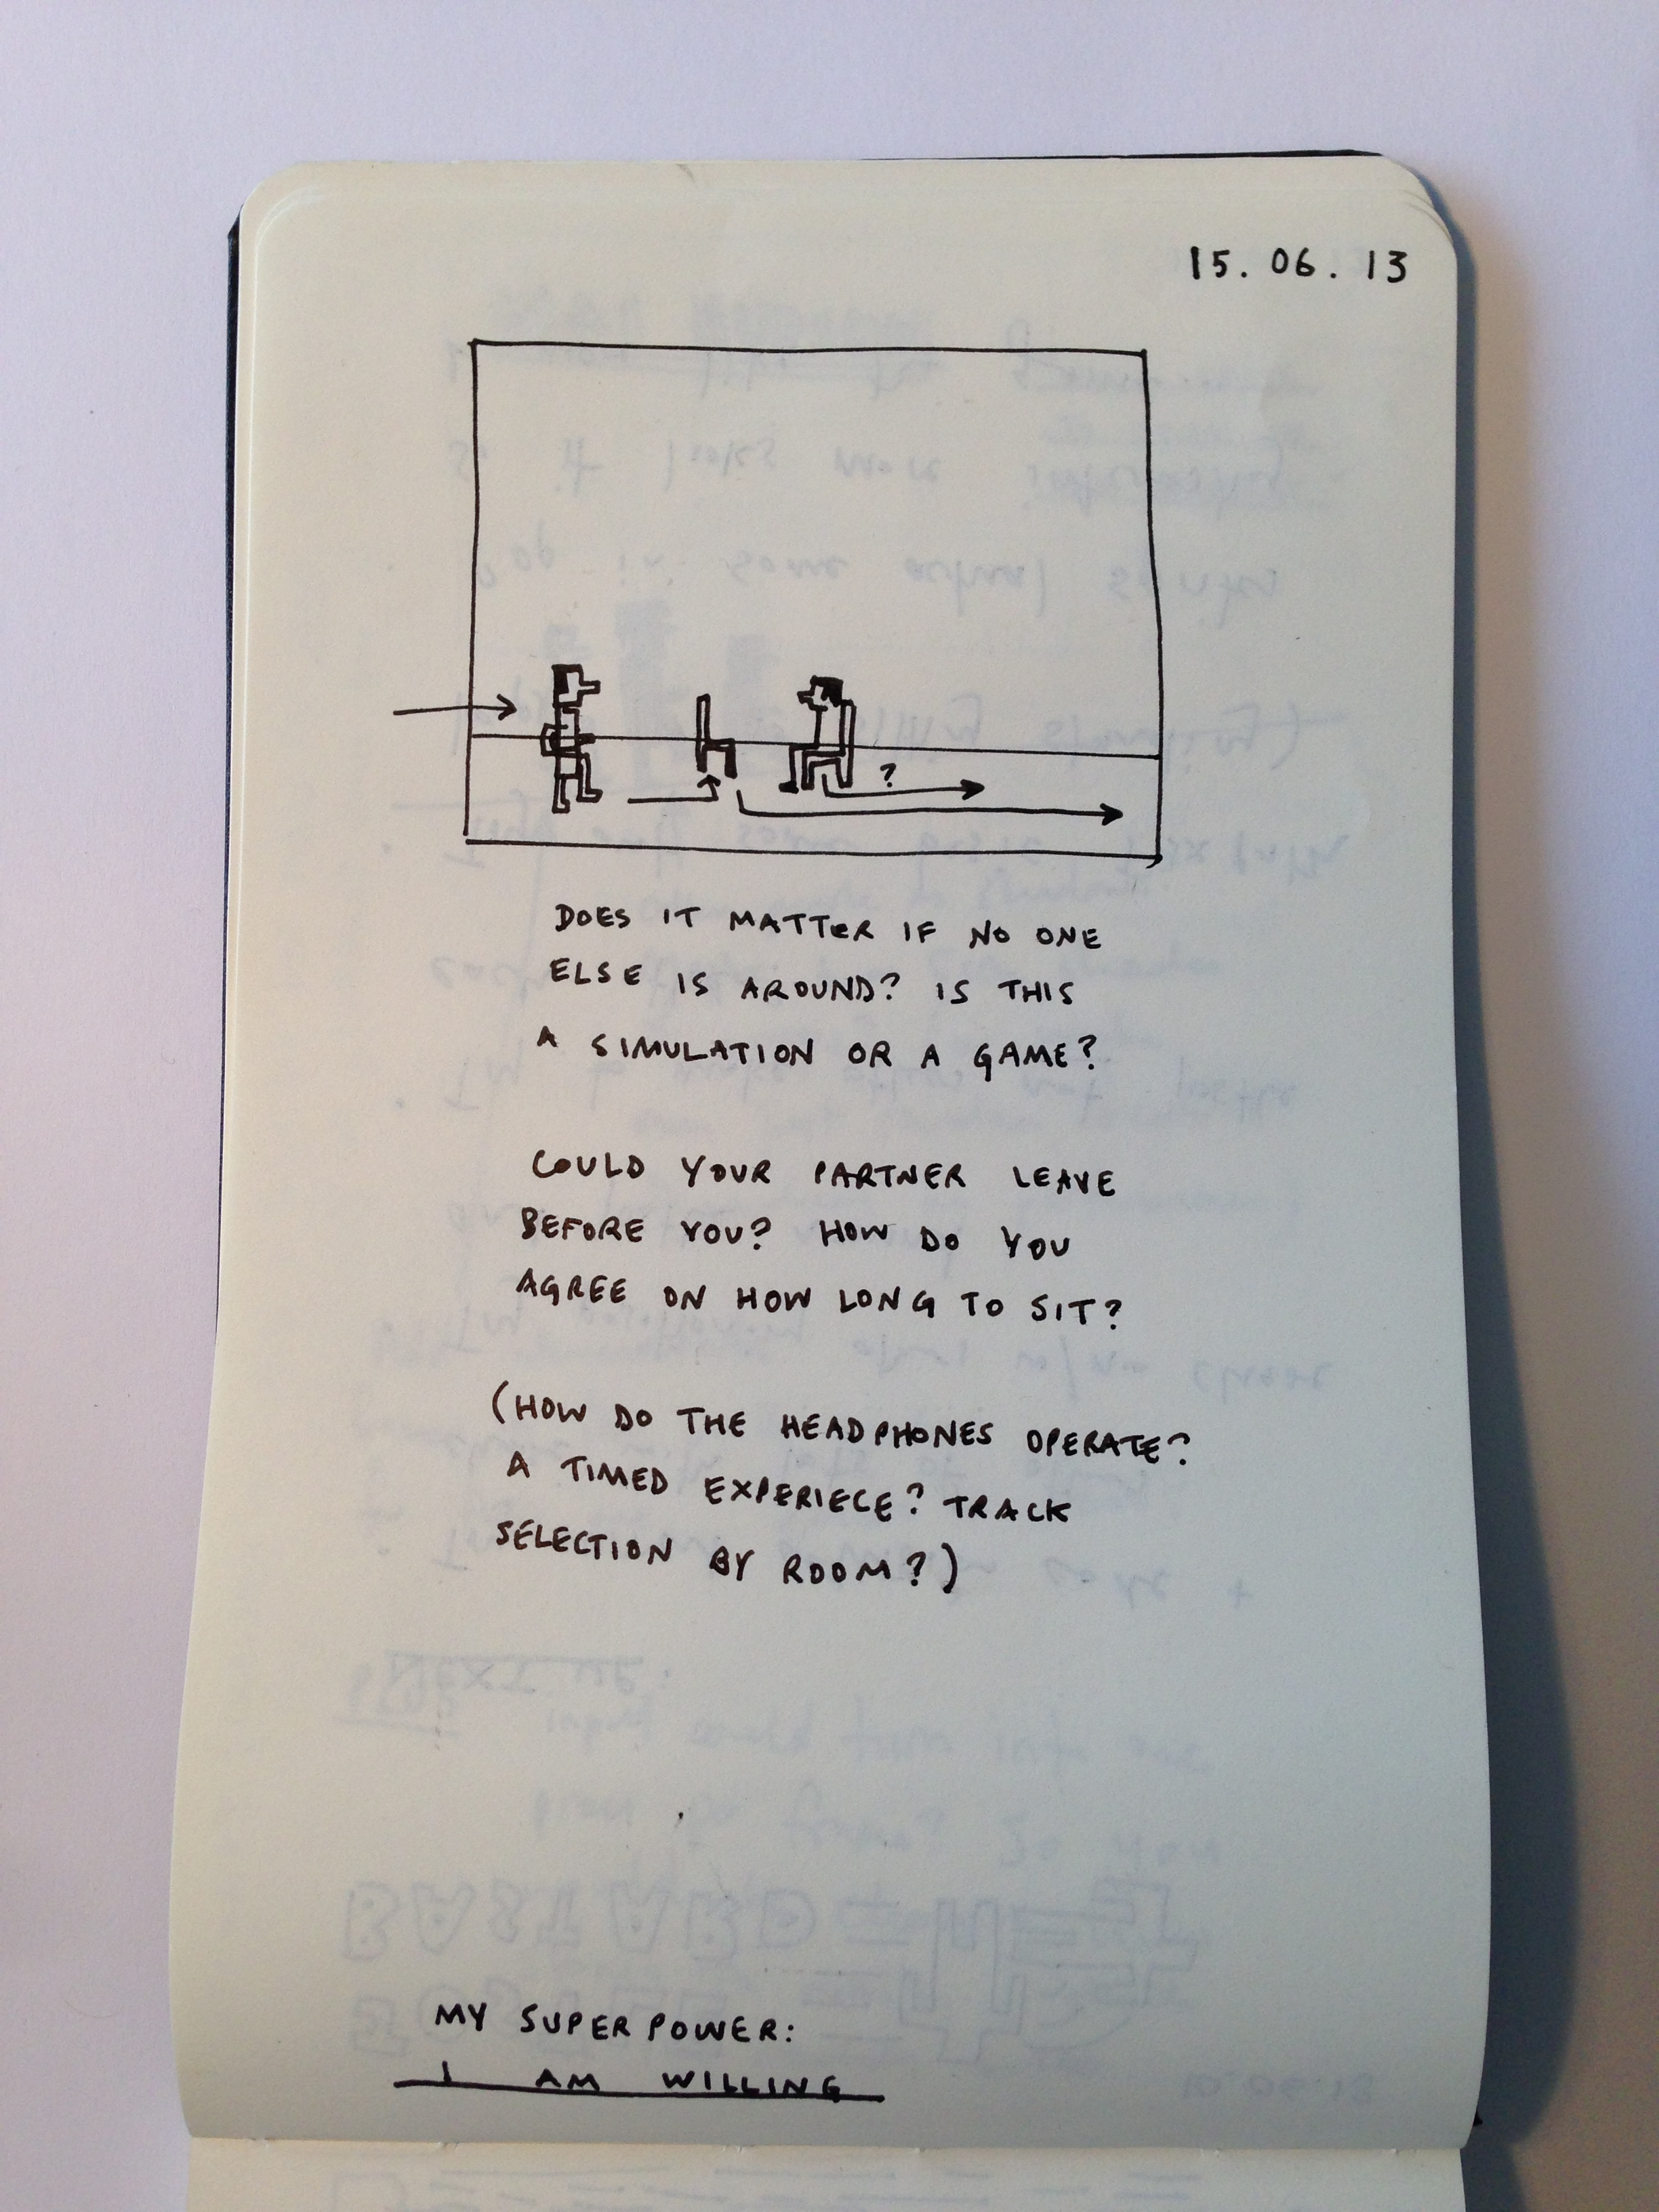 15. 06. 13
?
DOES IT MATTER IF NO ONE
ELSE IS AROUND? IS THIS
A SIMULATION OR A GAME?
COULD YOUR PARTNER LEAVE
BEFORE YOU? HOW DO YOU
AGREE ON HOW LONG TO SIT?
(HOW DO THE HEADPHONES OPERATE?
A TIMED EXPERIECE? TRACK
SELECTION BY ROOM?)
MY SUPER POWER:
I AM WILLING